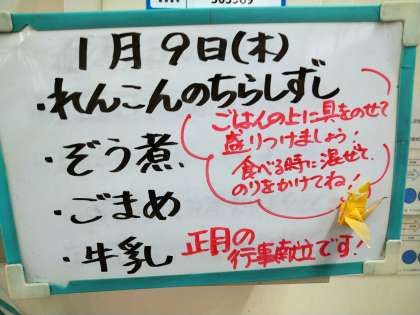 1月9日(木)
・れんこんのちらしずし
・ぞう煮
・ごまめ
・牛乳
ごはんの上に具をのせて
盛りつけましょう!
食べる時に混ぜて、
のりをかけてね!
正月の
行事献立です!